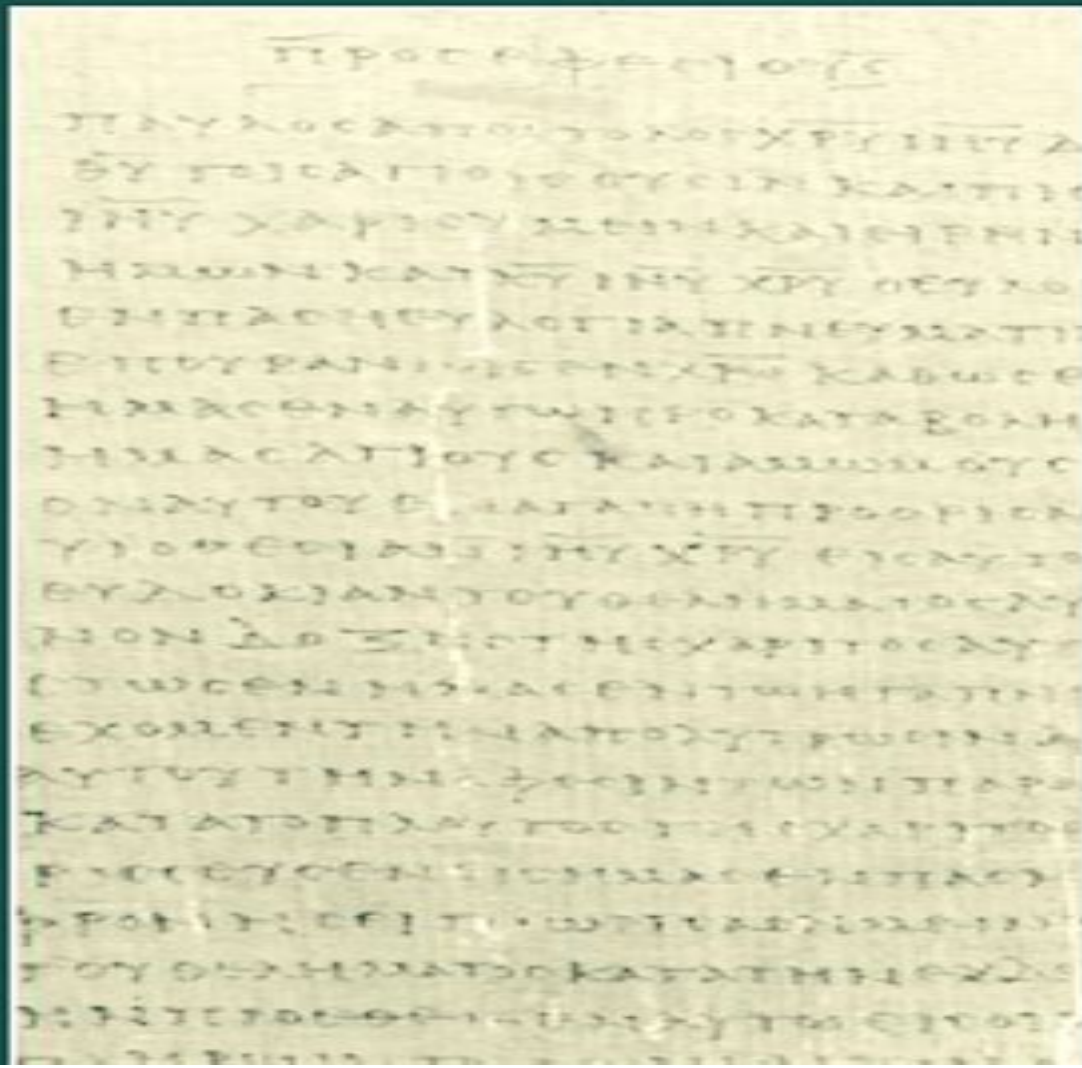 ΠΡΟϹ ΕΦΕϹΙΟΥϹ
ΠΑΥΛΟϹ ΑΠΟϹΤΟΛΟϹ ΧΡΥ ΙΗΥ Δ
ΘΥ ΤΟΙϹ ΑΓΙΟΙϹ ΟΥϹΙΝ ΚΑΙ ΠΙϹ
ΙΗΥ ΧΑΡΙϹ ΥΜΕΙΝ ΚΑΙ ΕΙΡΗΝΗ
ΗΜΩΝ ΚΑΙ ΚΥ ΙΗΥ ΧΡΥ Ο ΕΥΛΟ
ΕΝ ΠΑϹΗ ΕΥΛΟΓΙΑ ΠΝΕΥΜΑΤΙ
ΕΠΟΥΡΑΝΙΟΙϹ ΕΝ ΧΡΩ ΚΑΘΩϹ Ε
ΗΜΑϹ ΕΝ ΑΥΤΩ ΠΡΟ ΚΑΤΑΒΟΛΗ
ΗΜΑϹ ΑΓΙΟΥϹ ΚΑΙ ΑΜΩΜΟΥϹ
ΟΝ ΑΥΤΟΥ ΕΝ ΑΓΑΠΗ ΠΡΟΟΡΙϹΑ
ΥΙΟΘΕϹΙΑΝ ΙΗΥ ΧΡΥ ΕΙϹ ΑΥΤΟ
ΕΥΔΟΚΙΑΝ ΤΟΥ ΘΕΛΗΜΑΤΟϹ ΑΥ
ΝΟΝ ΔΟΞΗϹ ΤΗϹ ΧΑΡΙΤΟϹ ΑΥ
ΡΙΤΩϹΕΝ ΗΜΑϹ ΕΝ ΤΩ ΗΓΑΠΗ
ΕΧΟΜΕΝ ΤΗΝ ΑΠΟΛΥΤΡΩϹΙΝ Δ
ΑΥΤΟΥ ΤΗΝ ΑΦΕϹΙΝ ΤΩΝ ΠΑΡΑ
ΚΑΤΑ ΤΟ ΠΛΟΥΤΟϹ ΤΗϹ ΧΑΡΙΤΟ
ΡΙϹϹΕΥϹΕΝ ΕΙϹ ΗΜΑϹ ΕΝ ΠΑϹΗ
ΦΡΟΝΗϹΕΙ ΗΜΕΙΝ
ΤΟΥ ΘΕΛΗΜΑΤΟϹ ΚΑΤΑ ΤΗΝ ΕΥΔΟ
ΑΥΤΩ ΕΙϹ